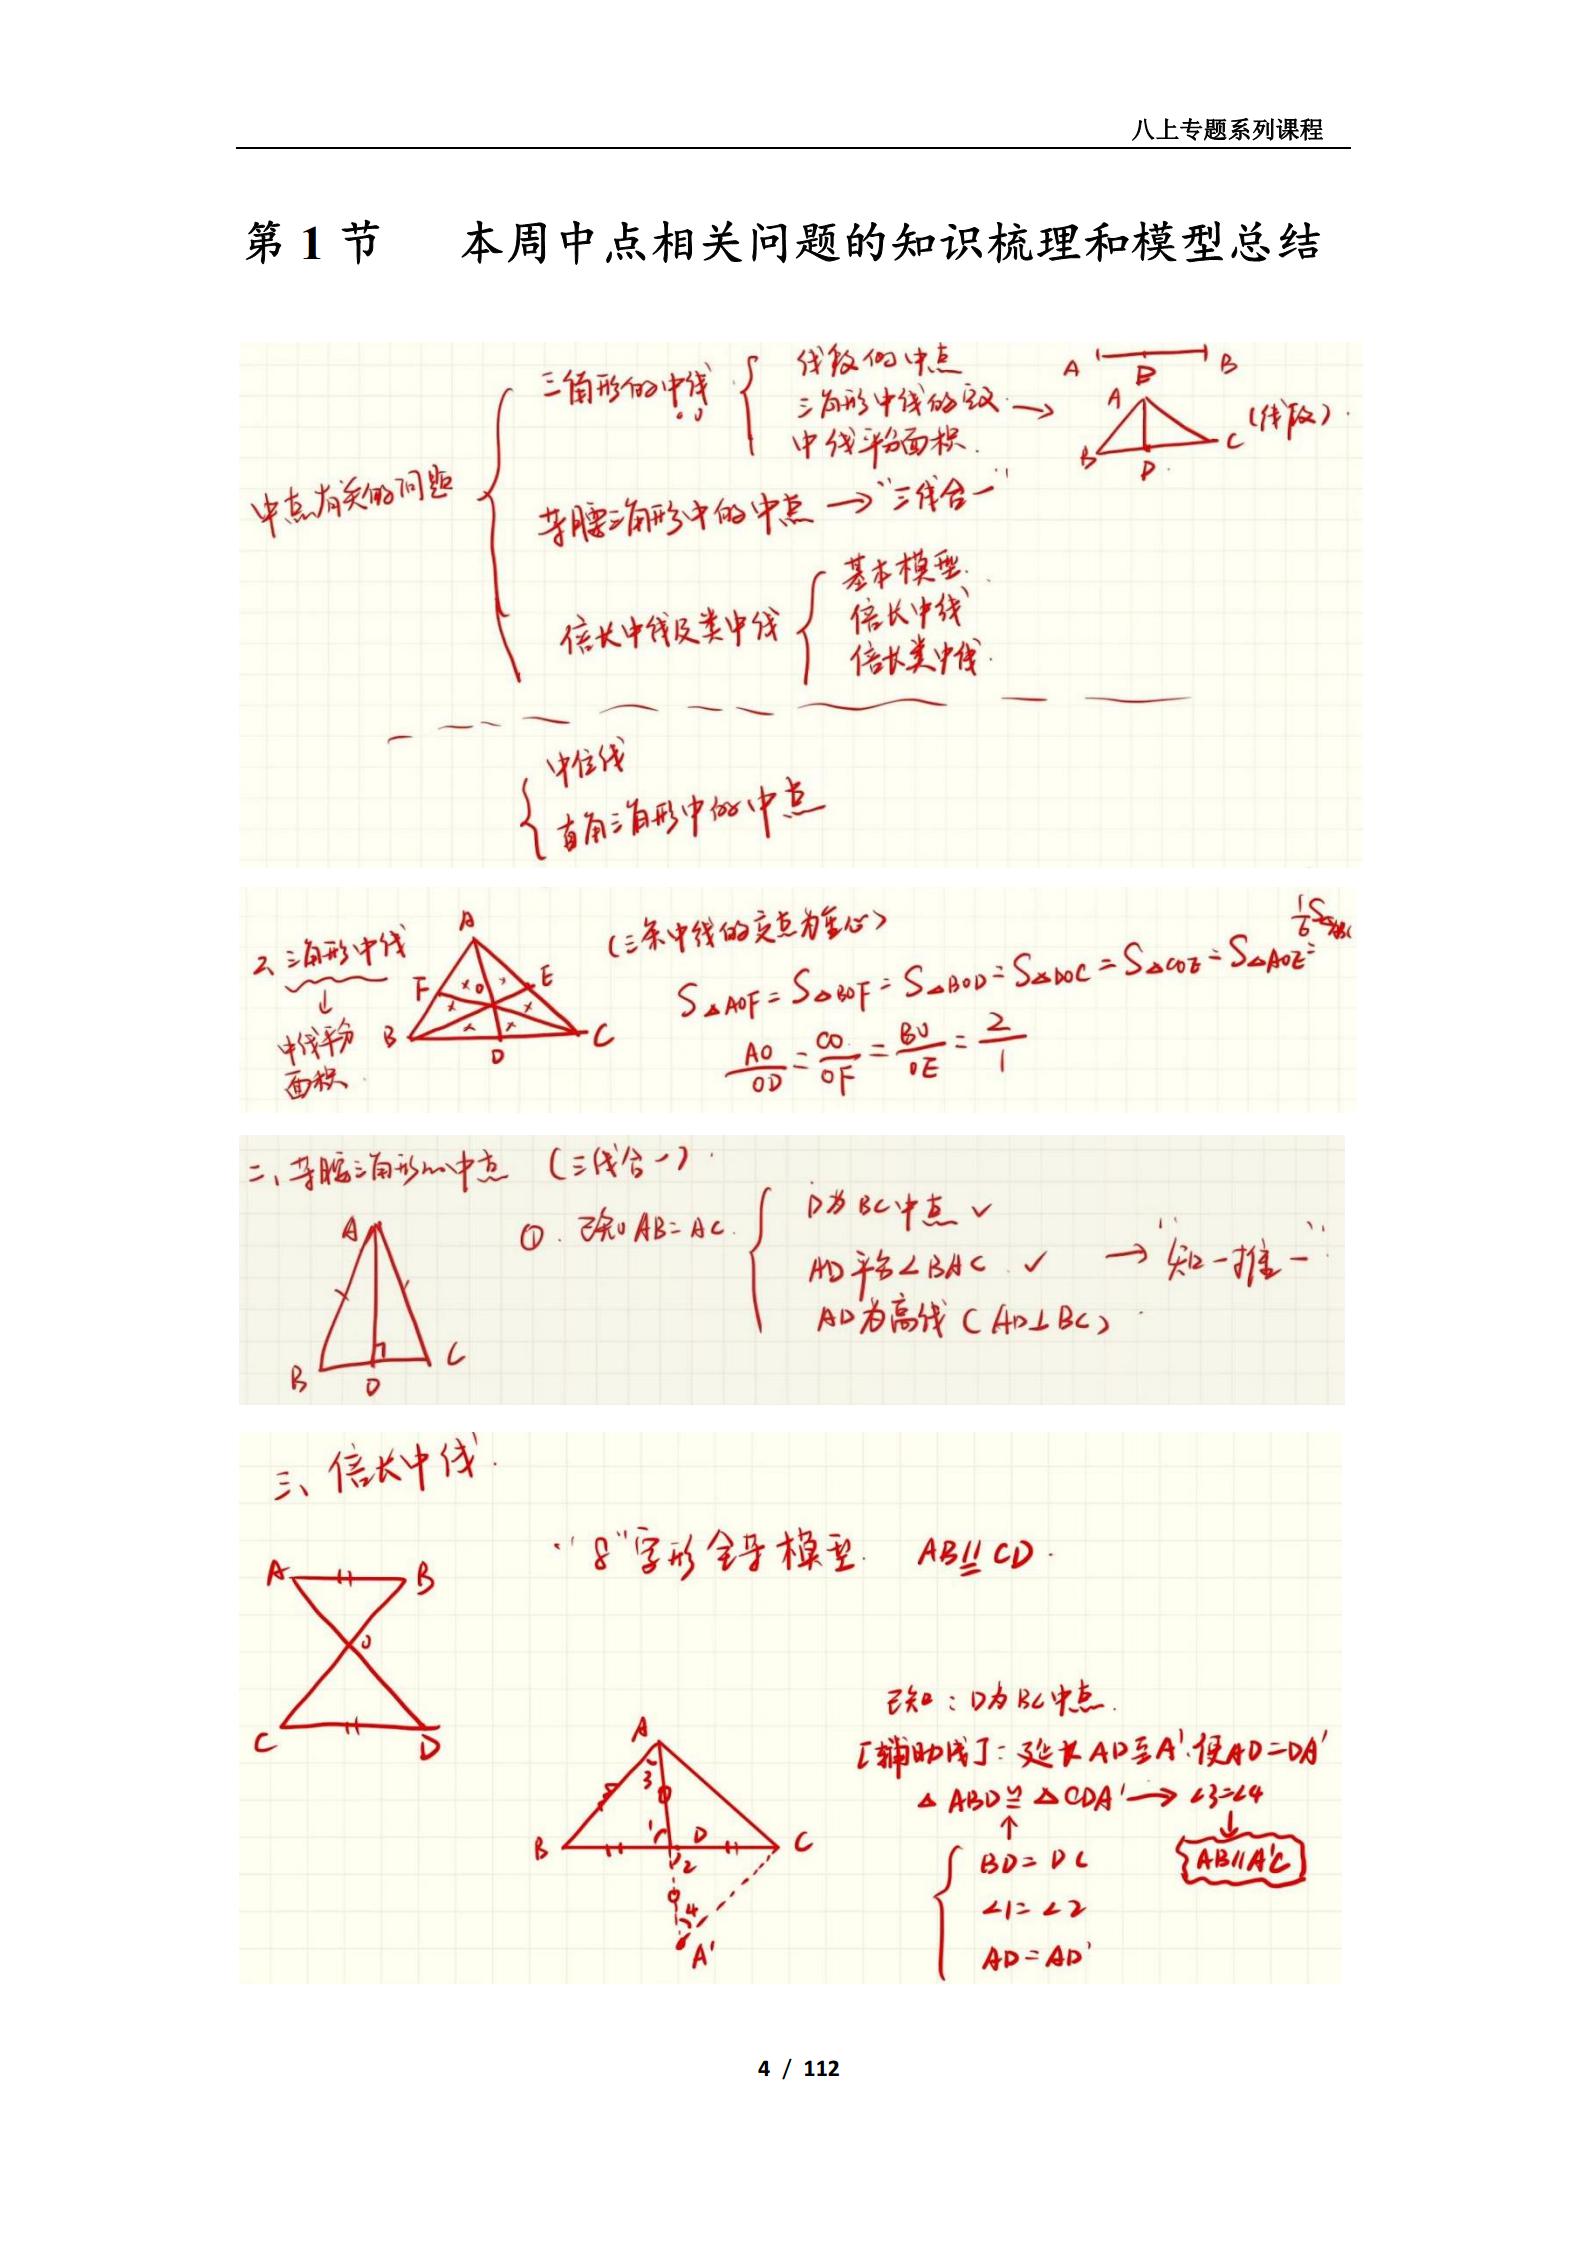 八上专题系列课程
第 1 节 本周中点相关问题的知识梳理和模型总结
中点有关的问题
三角形的中线
线段的中点
三角形中线的定义 →
中线平分面积.
A B
D
A
B D C (线段).
等腰三角形中的中点 → "三线合一"
倍长中线及类中线
基本模型.
倍长中线
倍长类中线.
中位线
直角三角形中的中点
2、三角形中线
↓
中线平分
面积.
A
F O E
B D C
(三条中线的交点为重心)
S△AOF = S△BOF = S△BOD = S△DOC = S△COE = S△AOE = 1/6 S△ABC
AO/OD = CO/OF = BO/OE = 2/1
二、等腰三角形的中点 (三线合一).
A
B D C
① . 已知 AB = AC.
D为BC中点 ✓
AD平分∠BAC . ✓
AD为高线 (AD⊥BC) .
→ "知一推一"
三、倍长中线.
"8"字形全等模型. AB∥CD .
A B
O
C D
A
3
B 1 D C
2
4
A'
已知: D为BC中点.
[辅助线]: 延长AD至A'.使AD=DA'
△ABD≌△CDA' → ∠3=∠4
↑ ↓
BD = DC AB∥A'C
∠1 = ∠2
AD = AD'
4 / 112